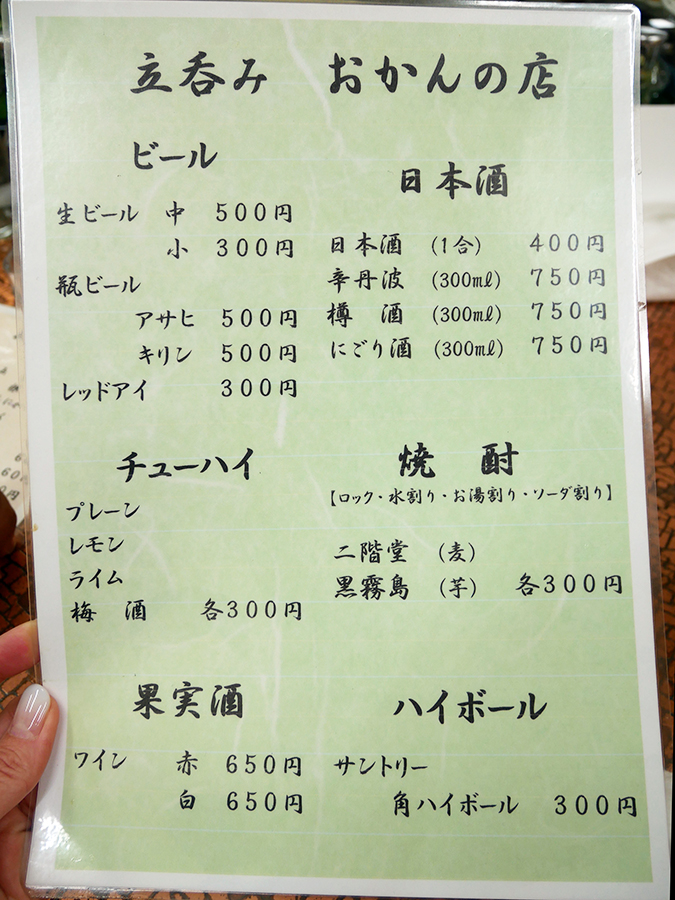 立呑み おかんの店
ビール
生ビール 中 500円
小 300円
瓶ビール
アサヒ 500円
キリン 500円
レッドアイ 300円
日本酒
日本酒 (1合) 400円
辛丹波 (300㎖) 750円
樽 酒 (300㎖) 750円
にごり酒 (300㎖) 750円
チューハイ
プレーン
レモン
ライム
梅 酒 各300円
焼 酎
【ロック・水割り・お湯割り・ソーダ割り】
二階堂 (麦)
黒霧島 (芋) 各300円
果実酒
ワイン 赤 650円
白 650円
ハイボール
サントリー
角ハイボール 300円